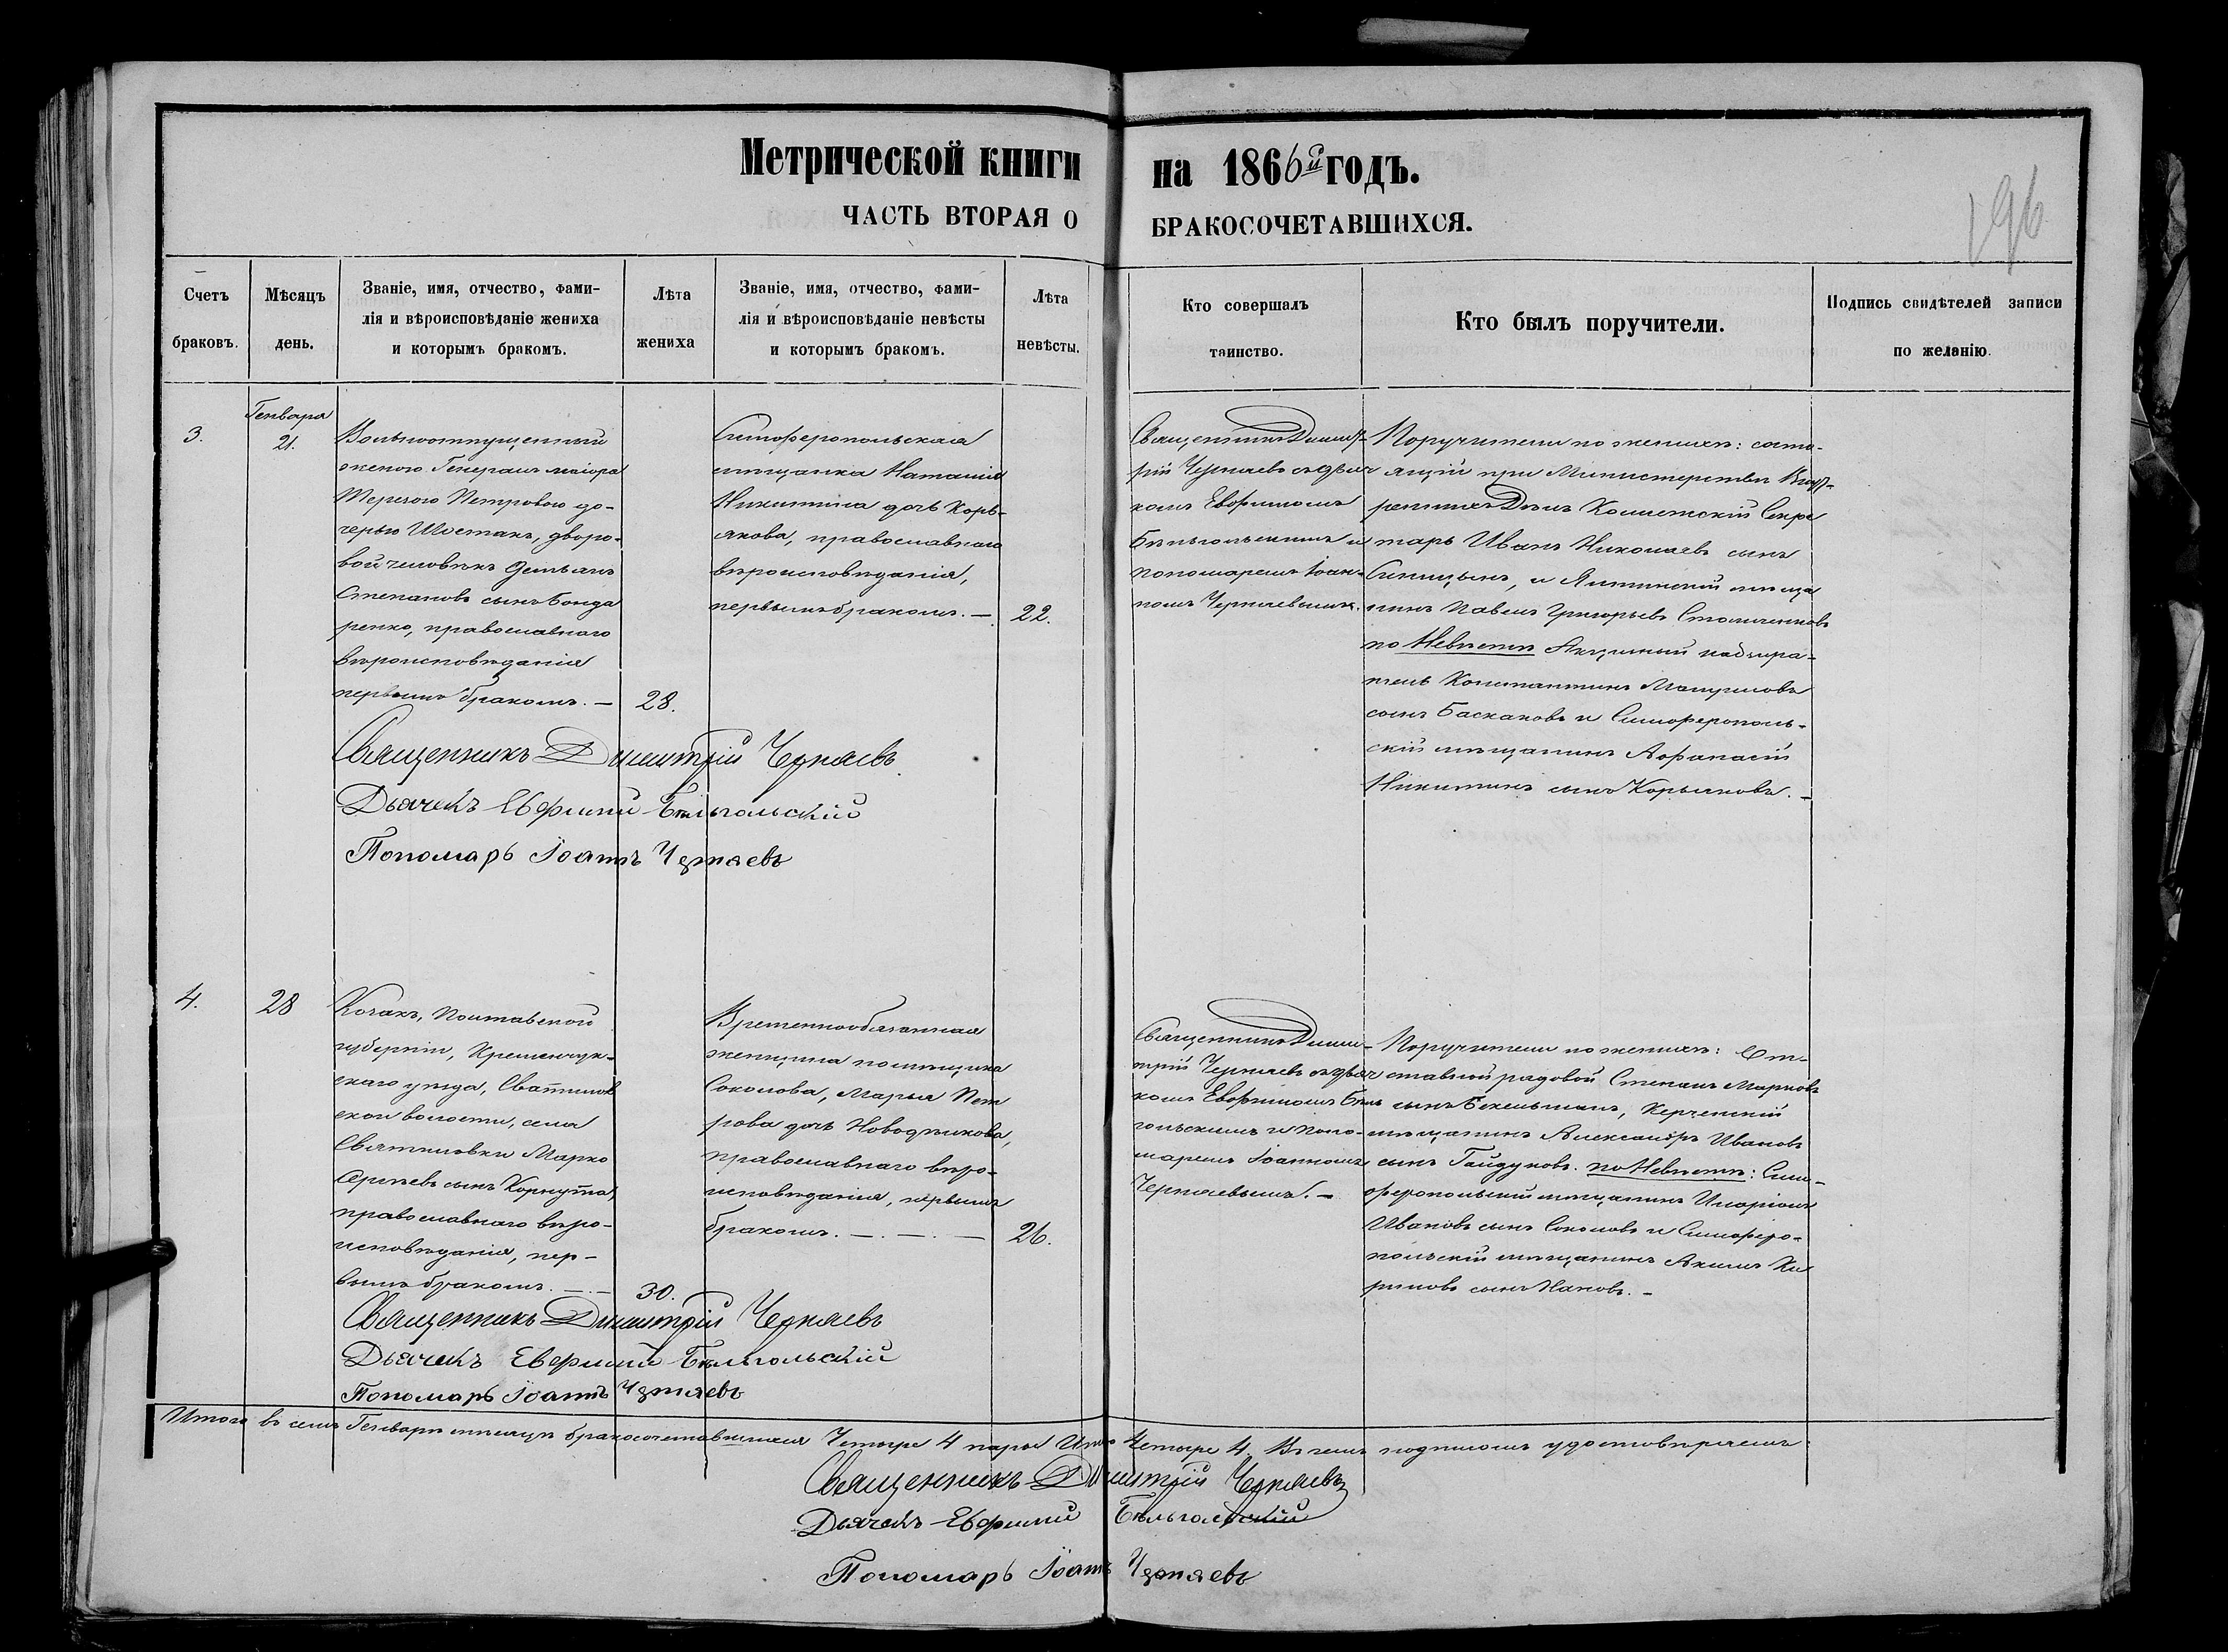 Метрической книги на 1866й годъ.
196
ЧАСТЬ ВТОРАЯ О БРАКОСОЧЕТАВШИХСЯ.
Счетъ браковъ.
Мѣсяцъ день.
Званіе, имя, отчество, фами-
лія и вѣроисповѣданіе жениха
и которымъ бракомъ.
Лѣта жениха
Званіе, имя, отчество, фами-
лія и вѣроисповѣданіе невѣсты
и которымъ бракомъ.
Лѣта невѣсты.
Кто совершалъ таинство.
Кто былъ поручители.
Подпись свидѣтелей записи
по желанію.
3.
Генваря
21.
Вольноотпущенный
женою Генералъ маіора
Петровою до-
черью Шостакъ, дворо-
вой человѣкъ Демьянъ
Степановъ сынъ Бонда
ренко, православнаго
вѣроисповѣданія
первымъ бракомъ. —
28.
Симферопольская
мѣщанка Наталія
Никитина дочь Корь-
якова, православнаго
вѣроисповѣданія,
первымъ бракомъ. —
22.
Священникъ Димит-
рій Черняевъ съ дьяч
комъ Евфиміемъ
Бѣльгольскимъ и
пономаремъ Іоан-
номъ Черняевымъ.
Поручители по женихѣ: состо-
ящій при Министерствѣ Внут-
реннихъ Дѣлъ Коллежскій Секре
тарь Иванъ Николаевъ сынъ
Синицынъ, и Ялтинскій мѣща
нинъ Павелъ Григорьевъ
по Невѣстѣ Акцизный надзира-
тель Константинъ
сынъ Баскаковъ и Симферополь-
скій мѣщанинъ Афанасій
Никитинъ сынъ Корьяковъ. —
Священникъ Димитрій Черняевъ
Дьячекъ Евфимій Бѣльгольскій
Пономарь Іоаннъ Черняевъ
4.
28
Козакъ, Полтавской
губерніи, Кременчуг-
скаго уѣзда,
ской волости, села
Марко
Сергѣевъ сынъ Корнута,
православнаго вѣро-
исповѣданія, пер-
вымъ бракомъ. — —
30.
Временнообязанная
женщина помѣщика
Соколова, Марья Пет
рова дочь
православнаго вѣро-
исповѣданія, первымъ
бракомъ. — . — . —
26.
Священникъ Дими-
трій Черняевъ съ дьяч
комъ Евфиміемъ Бѣль
гольскимъ и поно-
маремъ Іоанномъ
Черняевымъ. —
Поручители по женихѣ: От-
ставной рядовой Степанъ Марковъ
сынъ Керченскій
мѣщанинъ Александръ Ивановъ
сынъ Гайдуковъ. по Невѣстѣ: Сим-
феропольскій мѣщанинъ Иларіонъ
Ивановъ сынъ Соколовъ и Симферо-
польскій мѣщанинъ Акимъ Ки
риловъ сынъ
Священникъ Димитрій Черняевъ
Дьячекъ Евфимій Бѣльгольскій
Пономарь Іоаннъ Черняевъ
Итого въ семъ Генварѣ мѣсяцѣ бракосочетавшихся Четыре 4 пары Итого Четыре 4. Въ чемъ подписомъ удостовѣряемъ
Священникъ Димитрій Черняевъ
Дьячекъ Евфимій Бѣльгольскій
Пономарь Іоаннъ Черняевъ